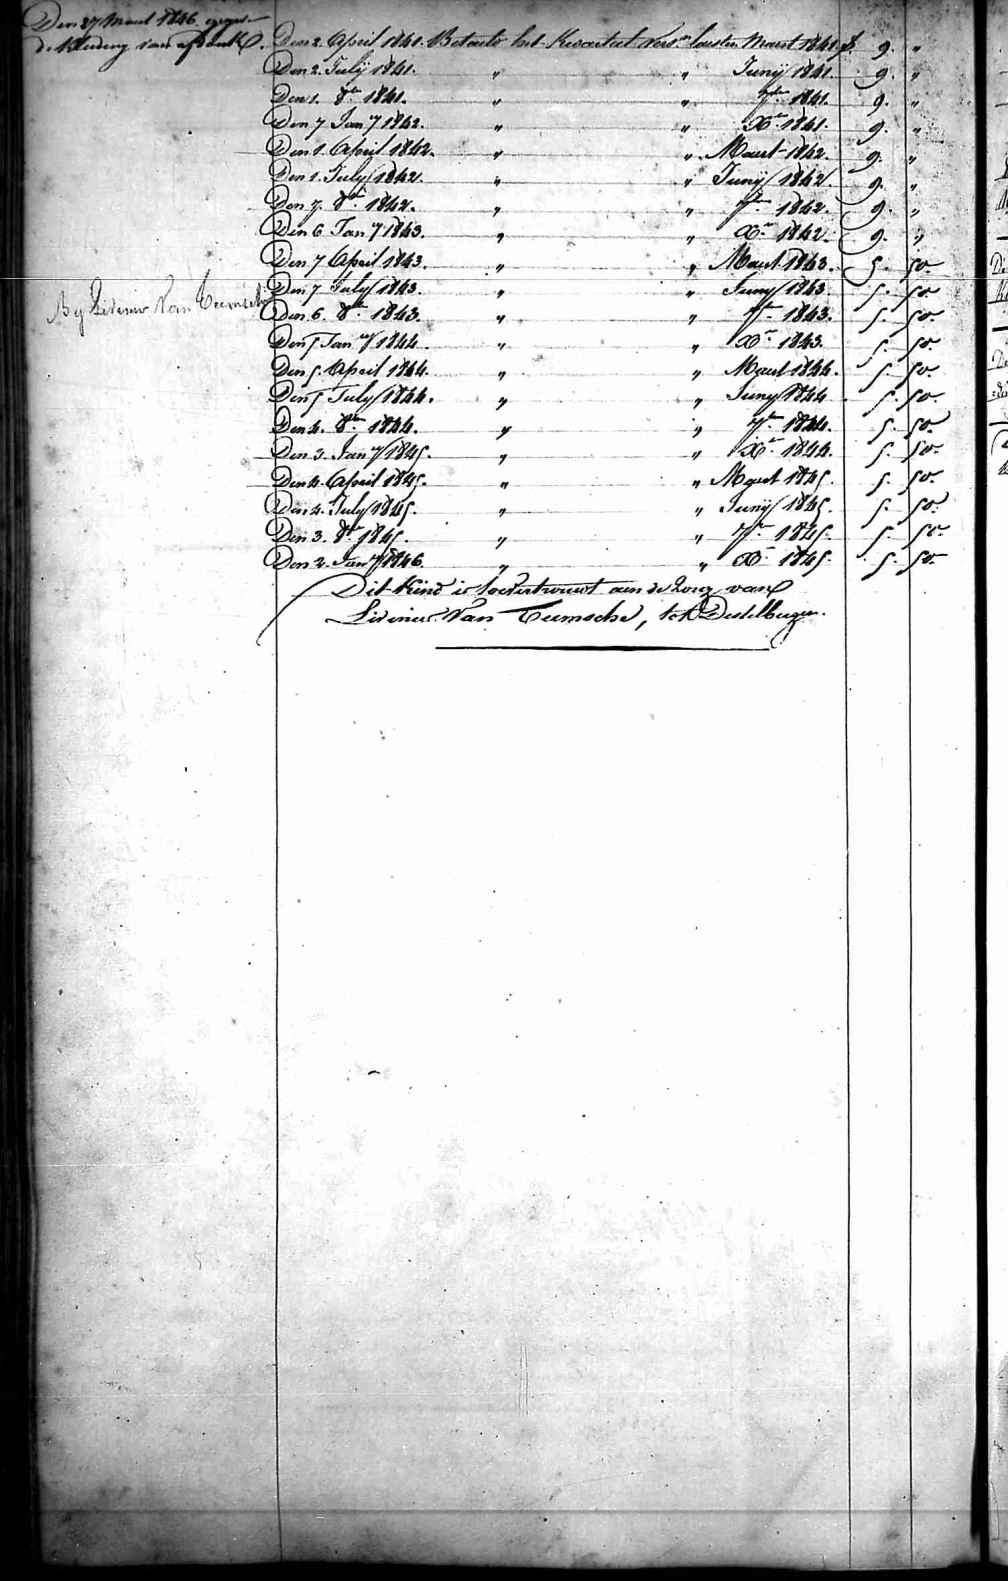 Den 27 Maart 1846. gegeven
de kleeding van afdank.
By Livinus Van Teemsche
Den 2. April 1841. Betaelt het kwartael vers.n laesten Maart 1841. f. 9. "
Den 2. Julÿ 1841. " " Junÿ 1841. 9. "
Den 1. 8bre 1841. " " 7bre 1841. 9. "
Den 7 Jany 1842. " " Xr 1841. 9. "
Den 1. April 1842. " " Maart 1842. 9. "
Den 1. July 1842. " " Junÿ 1842. 9. "
Den 7. 8bre 1842. " " 7bre 1842. 9. "
Den 6 Jany 1843. " " Xr 1842. 9. "
Den 7 April 1843. " " Maart 1843. 5. 50.
Den 7 July 1843. " " Juny 1843. 5. 50.
Den 6. 8bre 1843. " " 7bre 1843. 5. 50.
Den 5 Jany 1844. " " Xr 1843. 5. 50.
Den 5. April 1844. " " Maart 1844. 5. 50.
Den 5 July 1844. " " Juny 1844 5. 50.
Den 4. 8bre 1844. " " 7bre 1844. 5. 50.
Den 3. Jany 1845. " " Xr 1844. 5. 50.
Den 4. April 1845. " " Maart 1845. 5. 50.
Den 4. July 1845. " " Junÿ 1845. 5. 50.
Den 3. 8bre 1845. " " 7bre 1845. 5. 50.
Den 2. Jany 1846. " " Xr 1845. 5. 50.
Dit kind is toevertrouwt aen de zorg van
Livinus Van Teemsche, tot Destelbergen.